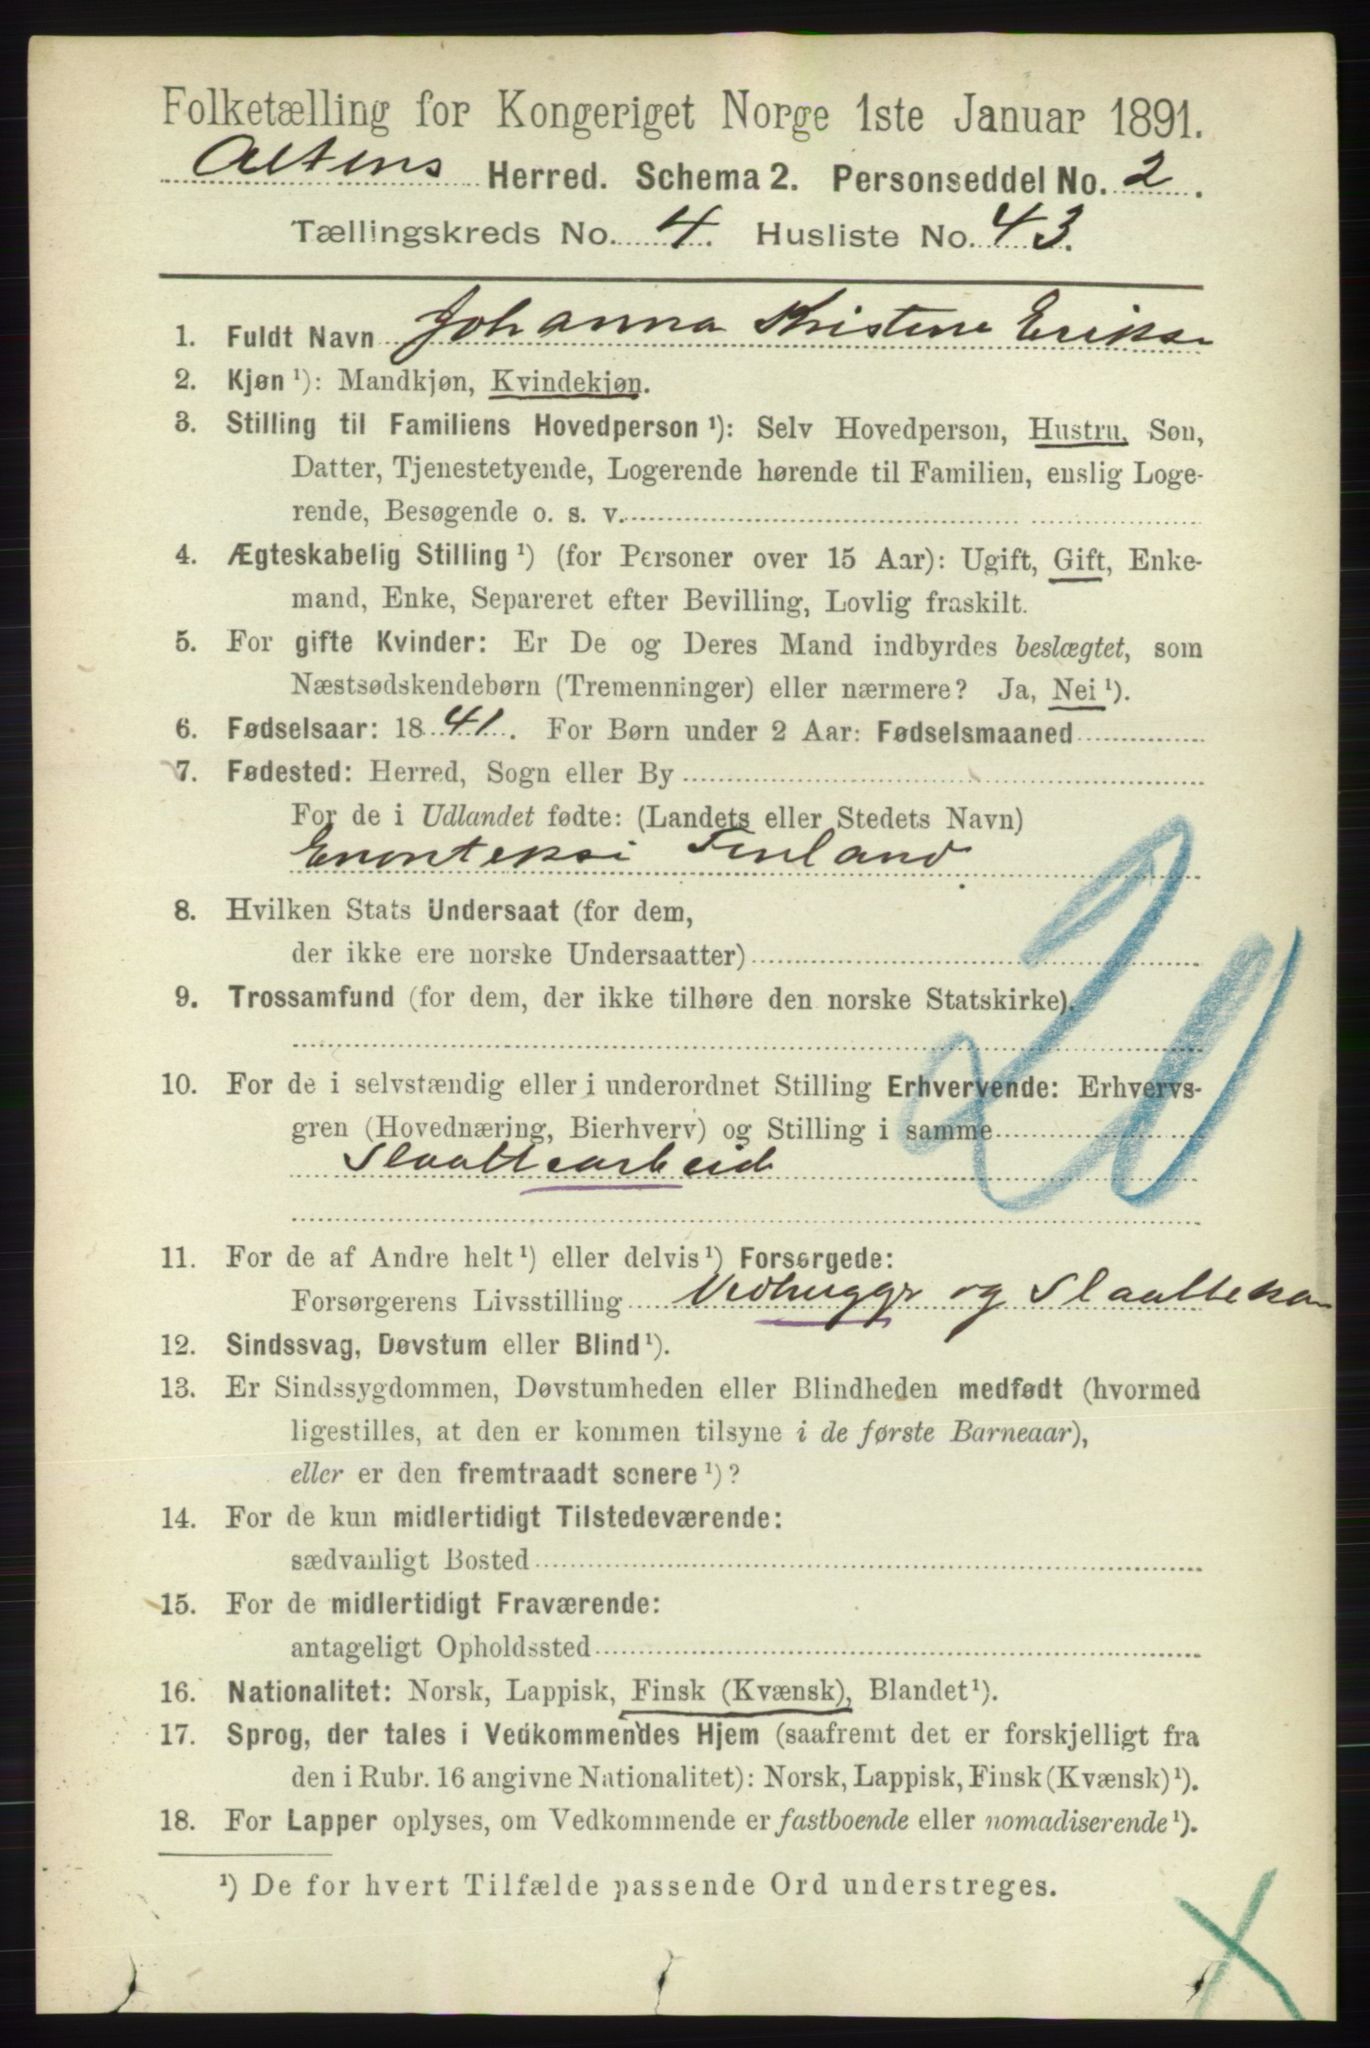 Folketælling for Kongeriget Norge 1ste Januar 1891.
Altens Herred. Schema 2. Personseddel No. 2.
Tællingskreds No. 4. Husliste No. 43.
1. Fuldt Navn Johanna Kristine Eriks
2. Kjøn ¹): Mandkjøn, Kvindekjøn.
3. Stilling til Familiens Hovedperson ¹): Selv Hovedperson, Hustru, Søn,
Datter, Tjenestetyende, Logerende hørende til Familien, enslig Loge-
rende, Besøgende o. s. v.
4. Ægteskabelig Stilling ¹) (for Personer over 15 Aar): Ugift, Gift, Enke-
mand, Enke, Separeret efter Bevilling, Lovlig fraskilt.
5. For gifte Kvinder: Er De og Deres Mand indbyrdes beslægtet, som
Næstsødskendebørn (Tremenninger) eller nærmere? Ja, Nei ¹).
6. Fødselsaar: 1841. For Børn under 2 Aar: Fødselsmaaned
7. Fødested: Herred, Sogn eller By
For de i Udlandet fødte: (Landets eller Stedets Navn)
Enonteksi Finland
8. Hvilken Stats Undersaat (for dem,
der ikke ere norske Undersaatter)
9. Trossamfund (for dem, der ikke tilhøre den norske Statskirke).
10. For de i selvstændig eller i underordnet Stilling Erhvervende: Erhvervs-
gren (Hovednæring, Bierhverv) og Stilling i samme
Slaattearbeid
11. For de af Andre helt ¹) eller delvis ¹) Forsørgede:
Forsørgerens Livsstilling Vedhugger og Slaattekar
12. Sindssvag, Døvstum eller Blind ¹).
13. Er Sindssygdommen, Døvstumheden eller Blindheden medfødt (hvormed
ligestilles, at den er kommen tilsyne i de første Barneaar),
eller er den fremtraadt senere ¹)?
14. For de kun midlertidigt Tilstedeværende:
sædvanligt Bosted
15. For de midlertidigt Fraværende:
antageligt Opholdssted
16. Nationalitet: Norsk, Lappisk, Finsk (Kvænsk), Blandet ¹).
17. Sprog, der tales i Vedkommendes Hjem (saafremt det er forskjelligt fra
den i Rubr. 16 angivne Nationalitet): Norsk, Lappisk, Finsk (Kvænsk) ¹).
18. For Lapper oplyses, om Vedkommende er fastboende eller nomadiserende ¹).
¹) De for hvert Tilfælde passende Ord understreges.